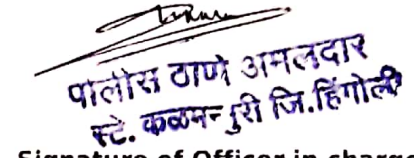 पोलीस ठाणे अमलदार
स्टे. कळमनुरी जि.हिंगोली
Signature of Officer in charge